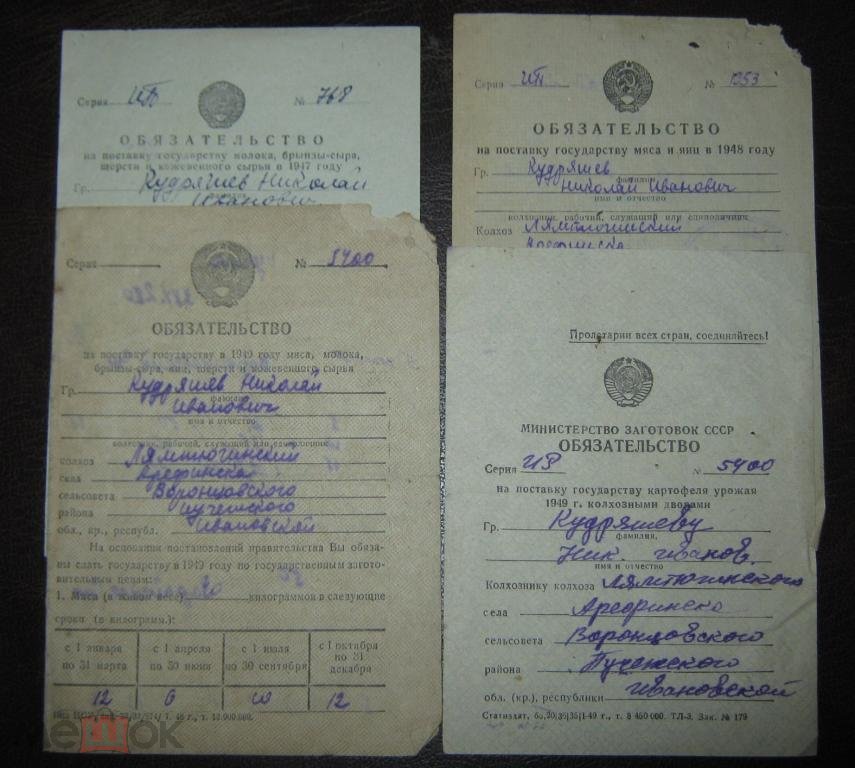 Серия ИТ № 768
ОБЯЗАТЕЛЬСТВО
на поставку государству молока, брынзы-сыра,
шерсти и кожевенного сырья в 1947 году
Гр. Кудряшев Николай
Иванович
Серия ИП № 1353
ОБЯЗАТЕЛЬСТВО
на поставку государству мяса и яиц в 1948 году
Гр. Кудряшев
фамилия
Николай Иванович
имя и отчество
колхозник, рабочий, служащий или единоличник
Колхоз Лямтюгинский
Арефинска
Серия № 5400
ОБЯЗАТЕЛЬСТВО
на поставку государству в 1949 году мяса, молока,
брынзы-сыра, яиц, шерсти и кожевенного сырья
Гр. Кудряшев Николай
фамилия
Иванович
имя и отчество
колхозник, рабочий, служащий или единоличник
колхоз Лямтюгинский
села Арефинска
сельсовета Воронцовского
района Пучежского
обл., кр., республ. Ивановской
На основании постановлений правительства Вы обяза-
ны сдать государству в 1949 году по государственным загото-
вительным ценам:
1. Мяса (в живом весе) килограммов в следующие
сроки (в килограмм.):
с 1 января по 31 марта
с 1 апреля по 30 июня
с 1 июля по 30 сентября
с 1 октября по 31 декабря
12 6 10 12
Пролетарии всех стран, соединяйтесь!
МИНИСТЕРСТВО ЗАГОТОВОК СССР
ОБЯЗАТЕЛЬСТВО
Серия ИР № 5400
на поставку государству картофеля урожая
1949 г. колхозными дворами
Гр. Кудряшеву
фамилия,
Ник. Иванов.
имя и отчество
Колхознику колхоза Лямтюгинского
села Арефинско
сельсовета Воронцовского
района Пучежского
обл. (кр.), республики Ивановской
Статиздат, 60,20|39|35|1-49 г., т. 8 450 000. ТЛ-3. Зак. № 179
меток